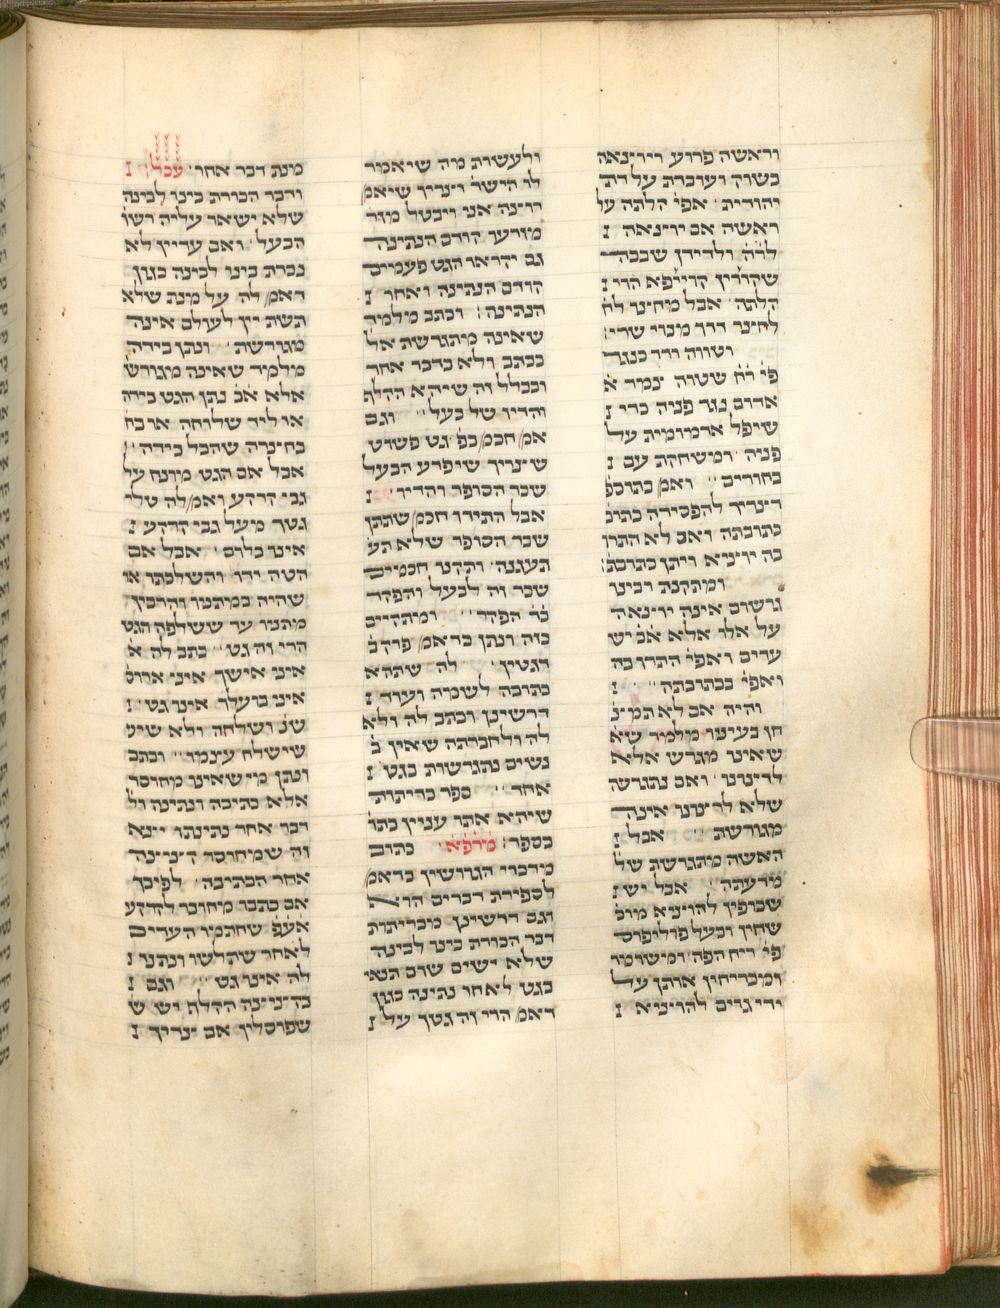 וראשה פרוע ויוצאה
בשוק ועוברת על דת
יהודית אפי' הלתה על
ראשה אם יוצאה
לר'ה ולדידן שבכה
שקורין קוייפא הרי
קלתה אבל מחצר לח
לחצר דרך מבוי שרי
וטווה ורד כנגד
פי' ר'ח שטוה צמר א
אדום נגד פניה כדי
שיפל אדמומית על
פניה ומשחקת עם
בחורים ואמ' בתוספ
דצריך להפסידה כתוב
כתובתה ואם לא התרו
בה יוציא ויתן כתובת
ומתקנת רבינו
גרשום אינה יוצאה
על אלו אלא א'כ יש
עדים ואפי' התרו בה
ואפי' בכתובתה
והיה אם לא תמצ
חן בעיניו מלמד שא
שאינו מגרש אלא
לרצונו ואם נתגרשה
שלא לרצונו אינה
מגורשת אבל
האשה מתגרשת של
מדעתה אבל יש
שכופין להוציא מוכ
שחין ובעל פוליפוס
פי' ריח הפה ומשומד
ומכריחין אותן על
ידי גוים להוציא
ולעשות מה שיאמר
לו הישר' וצריך שיאמ
רוצה אני ויבטל מוד
מודעו קודם הנתינה
גם יקראו הגט פעמים
קודם הנתינה ואחר
הנתינה וכתב מלמד
שאינה מתגרשת אל
בכתב ולא בדבר אחר
ובכלל זה שיהא הקלף
והדיו של בעל וגם
אמ' חכמ' כפ' גט פשוט
שצריך שיפרע הבעל
שכר הסופר והדיו
אבל התירו חכמ' שתתן
שכר הסופר שלא תע
תעגנה ותקנו חכמים
שכר זה לבעל והפקר
ב'ד הפקר ומתקיים
בזה ונתן כדאמ' פרק ב'
דגטין לה שתהא
כתובה לשמה ועוד
דרשינן וכתב לה ולא
לה ולחברתה שאין ב'
נשים נתגרשות בגט
אחד ספר כריתות
שיהא אתו עניין כתו
בספר מדפא כתוב
מדברי הגרושין כדאמ'
לספירת דברים הוא
וגם דרשינן מכריתות
דבר הכורת בינו לבינה
שלא ישים שום תנאי
בגט לאחר נתינה כגון
דאמ' הרי זה גטך על
מנת דבר אחר עכל'
ודבר הכורת בינו לבינה
שלא ישאר עליה רשו
הבעל ואם עדיין לא
נכרת בינו לבינה כגון
דאמ' לה על מנת שלא
תשת יין לעולם אינה
מגורשת ונתן בידה
מלמד שאינה מגורש
אלא א'כ נתן הגט בידה
או ליד שלוחה או בח
בחצרה שהכל כידה
אבל אם הגט מונח על
גבי קרקע ואמ' לה טלי
גטך מעל גבי קרקע
אינו כלום אבל אם
הטה ידו והשליכתו או
שהיה במתנו והרכין
מתניו עד ששלפה הגט
הרי זה גט כתב לה א
איני אישך איני ארוס
איני בועלך אינו גט
שנ' ושלחה ולא שיע
שישלח עצמו וכתב
ונתן מי שאינו מחוסר
אלא כתיבה ונתינה ול
דבר אחר כתינתו יצא
זה שמחוסר קציצה
אחר הכתיבה לפיכך
אם כתבו מחובר לקרקע
אע'פ שחתמו העדים
לאחר שתלשו ונתנו
לה אינו גט וגם
בקציצה הקלף יש ש
שפוסלין אם צריך